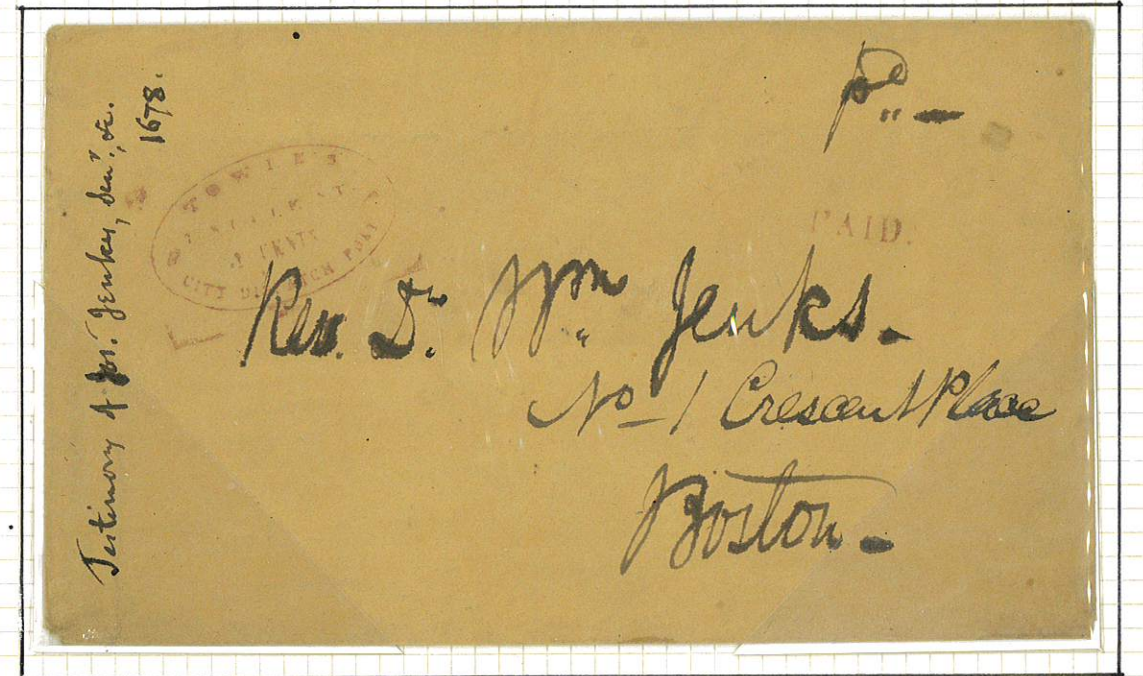 Testimony of Jos. Jenks, Senr., &c.
1678.
pd. —
TOWLE'S
2 CENTS
CITY DISPATCH POST
PAID.
Rev. Dr. Wm. Jenks.
No – 1 Crescent Place
Boston.